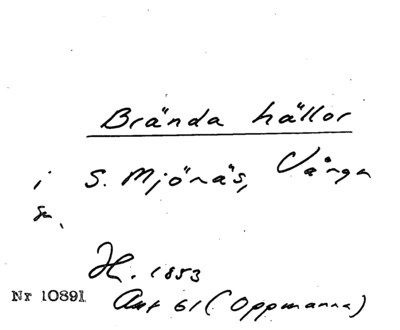 Brända hällor
i S. Mjönäs, Vånga
sn.
H. 1853
Nr 10891 Akt 61 (Oppmanna)